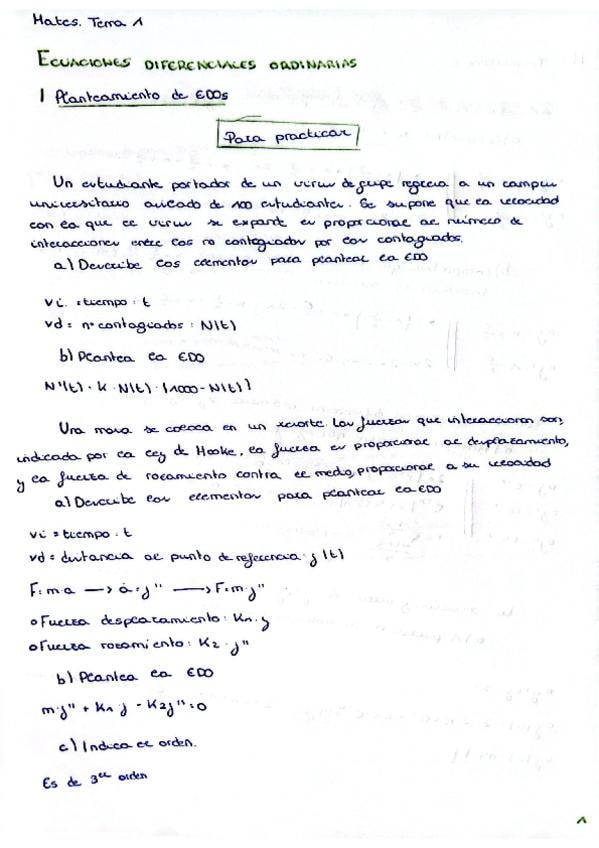 Mates. Tema 1
ECUACIONES DIFERENCIALES ORDINARIAS
1 Planteamiento de EDOs
Para practicar
Un estudiante portador de un virus de gripe regresa a un campus
universitario aislado de 1000 estudiantes. Se supone que la velocidad
con la que el virus se expande es proporcional al número de
interacciones entre los no contagiados por los contagiados.
a) Describe los elementos para plantear la EDO
vi. = tiempo : t
vd = nº contagiados : N(t)
b) Plantea la EDO
N'(t) = K · N(t) · (1000 - N(t))
Una masa se coloca en un resorte. Las fuerzas que interaccionan son,
indicada por la ley de Hooke, la fuerza es proporcional al desplazamiento,
y la fuerza de rozamiento contra el medio, proporcional a su velocidad
a) Describe los elementos para plantear la EDO
vi = tiempo : t
vd = distancia al punto de referencia : y (t)
F = m·a → a = y'' → F = m·y''
o Fuerza desplazamiento : K1 · y
o Fuerza rozamiento : K2 · y''
b) Plantea la EDO
m·y'' + K1·y - K2y'' = 0
c) Indica el orden.
Es de 3er orden
1